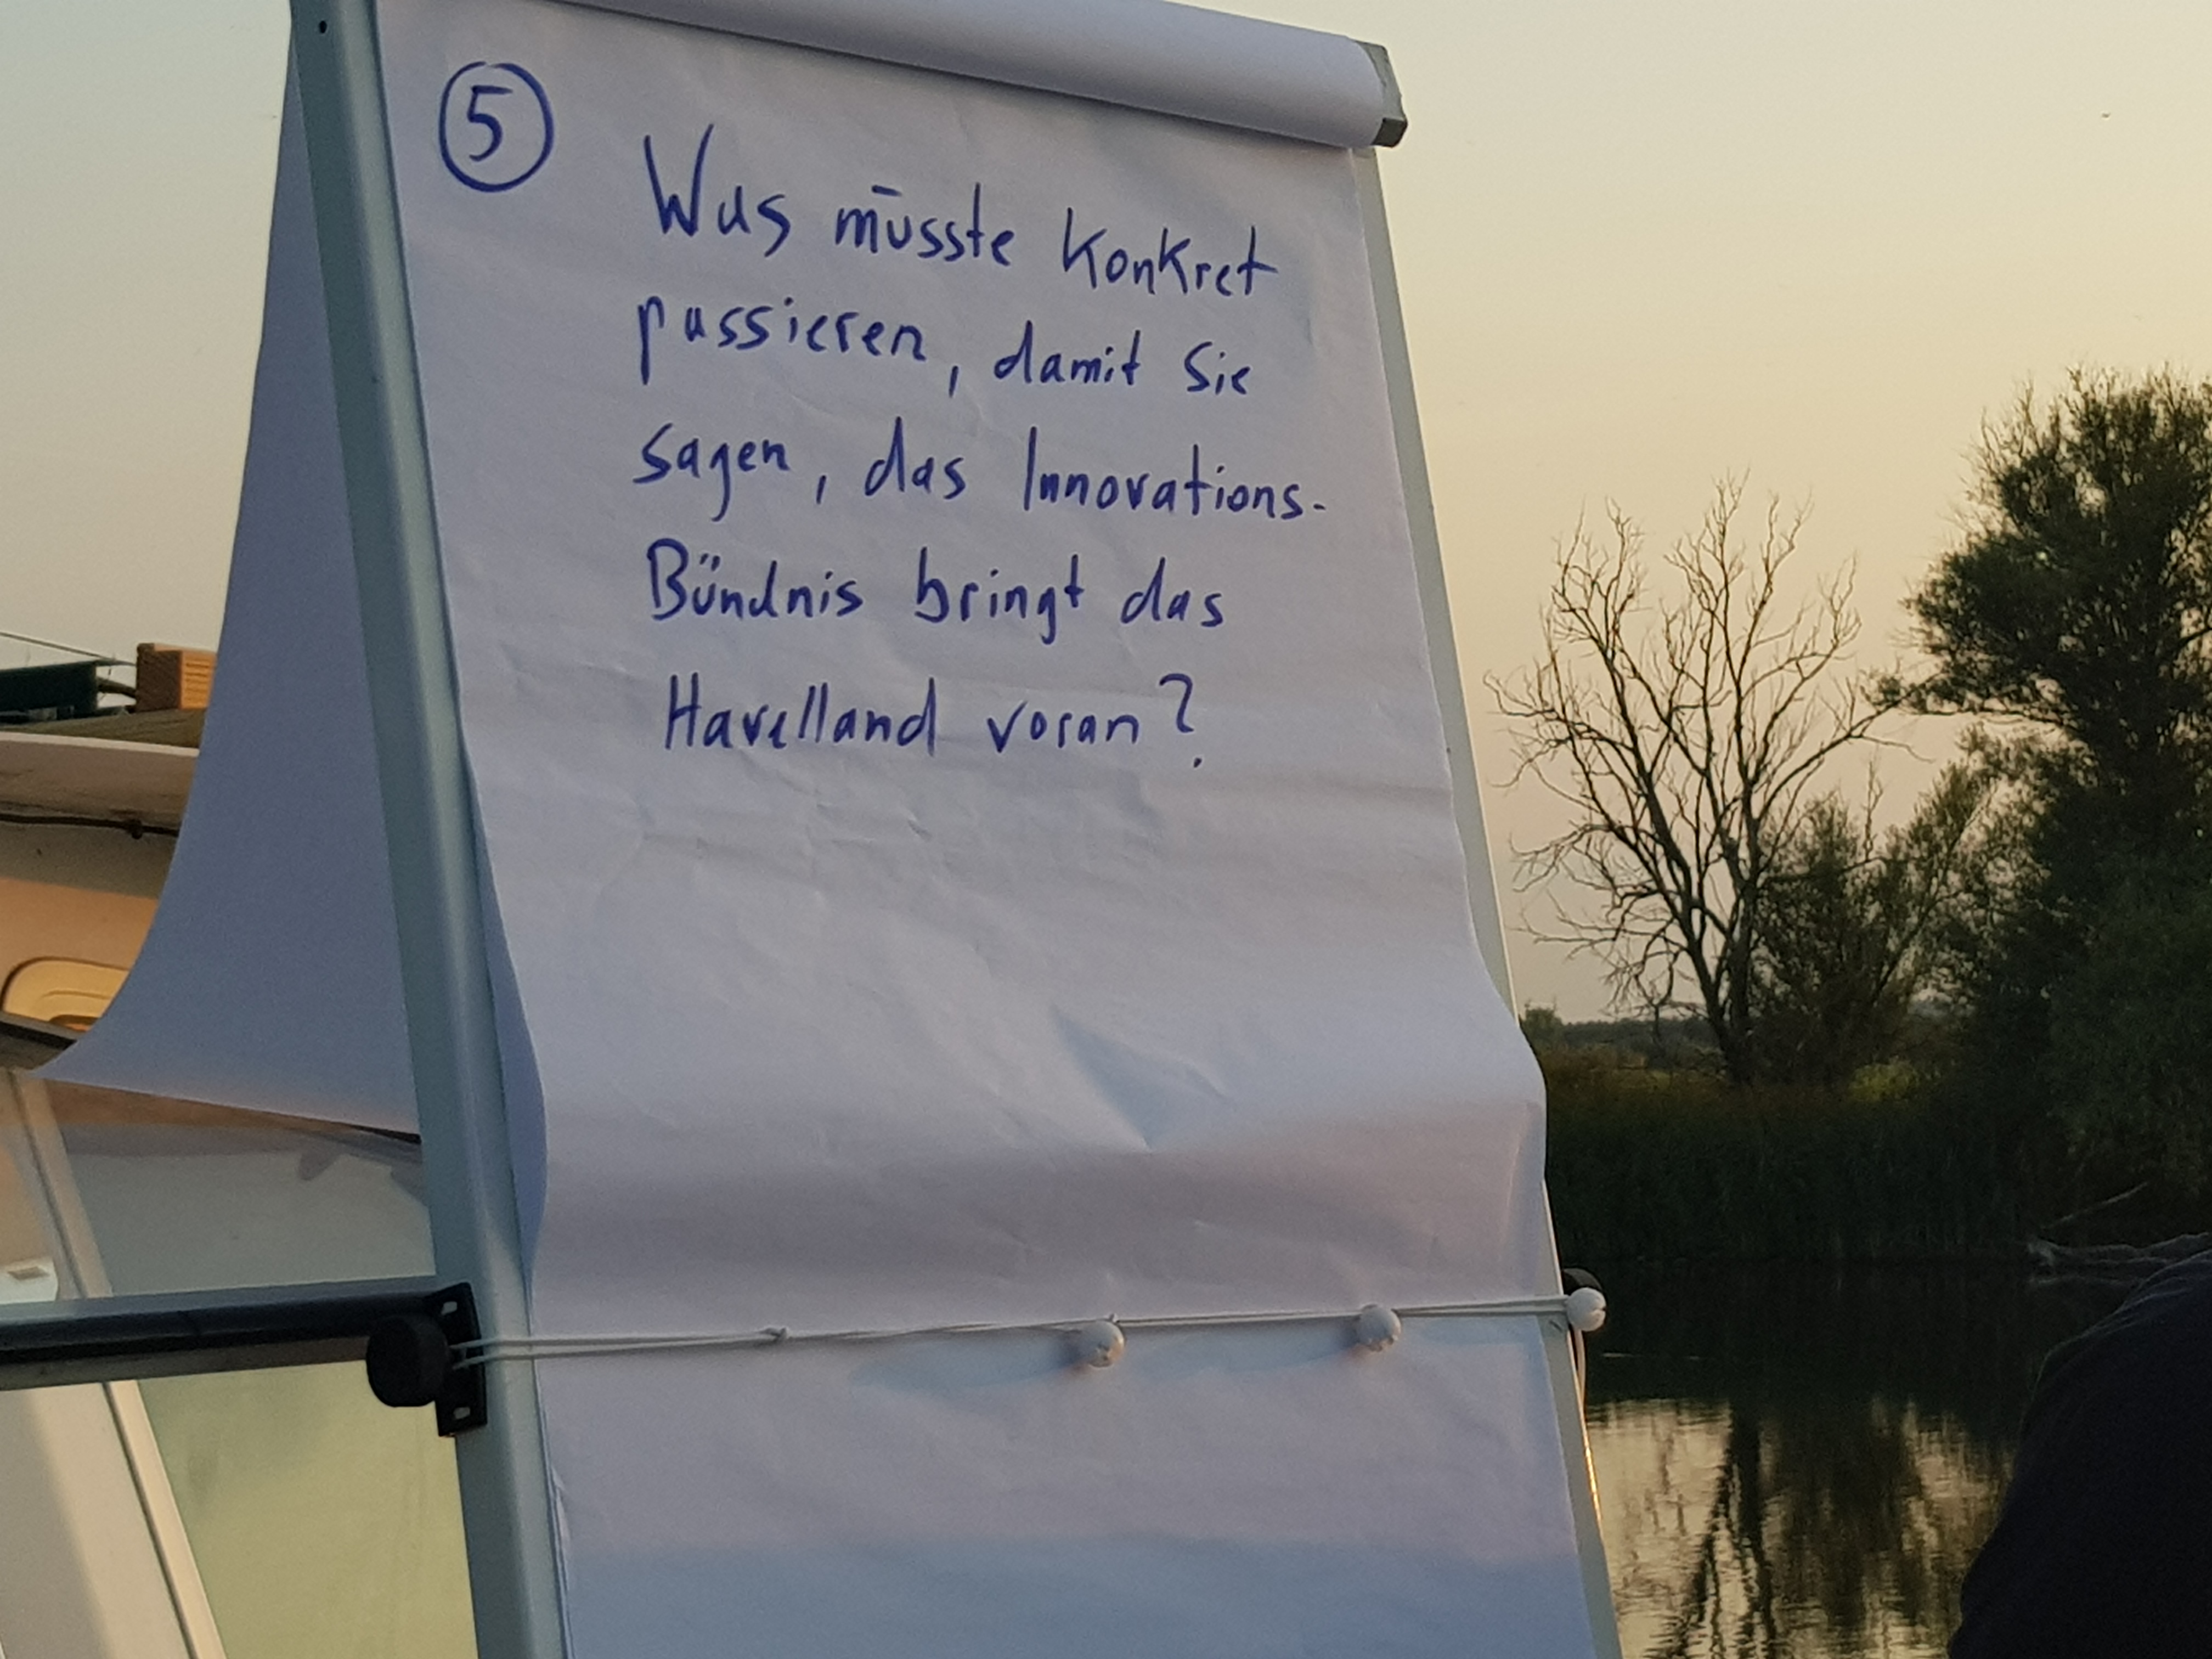 5
Was müsste konkret
passieren, damit Sie
sagen, das Innovations-
Bündnis bringt das
Havelland voran?